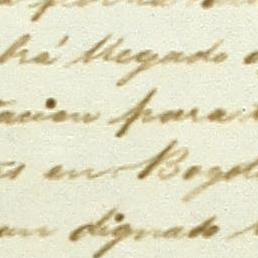 brá llegado
tacion para
en Bogotá
un dignado